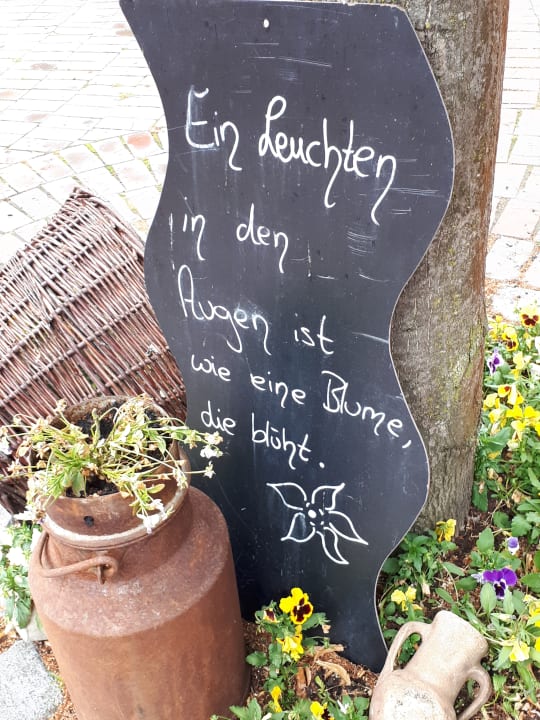 Ein Leuchten
in den
Augen ist
wie eine Blume,
die blüht.